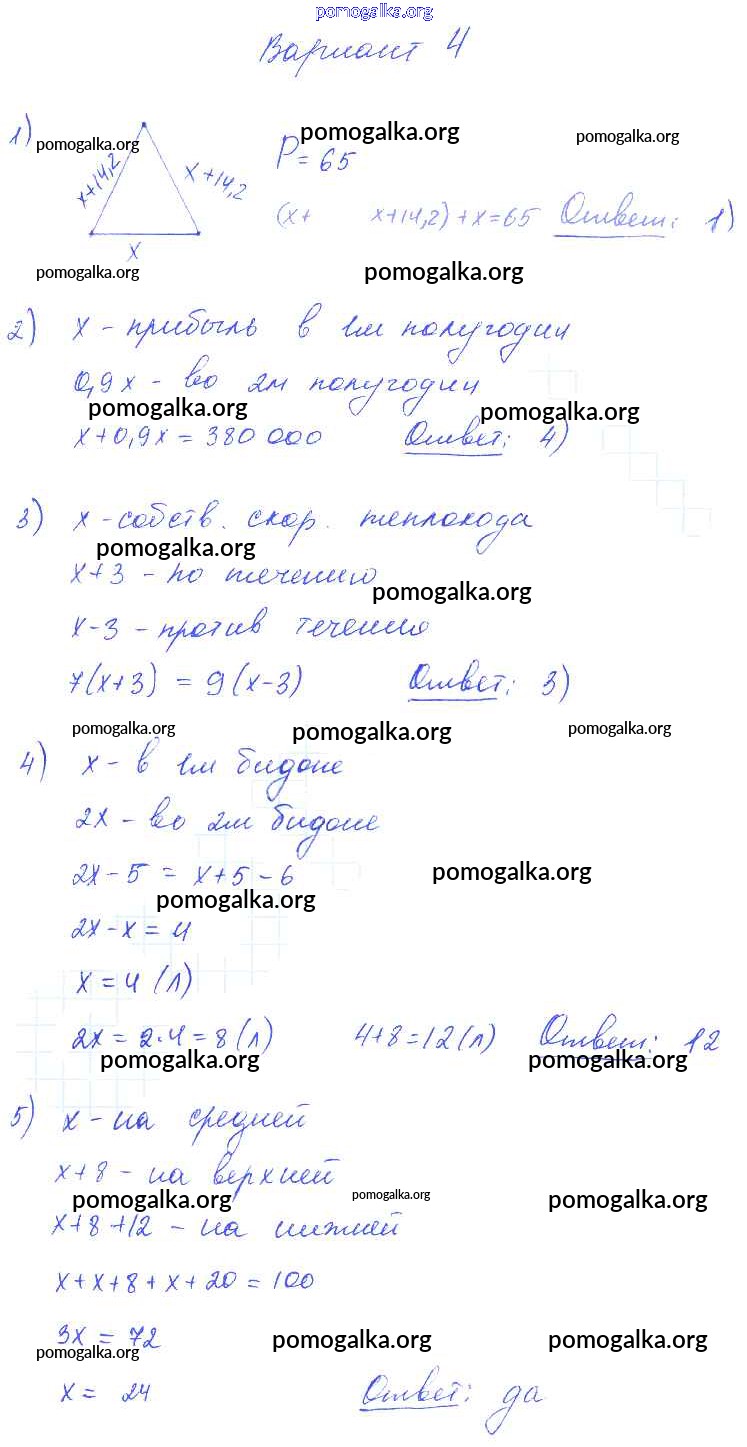 pomogalka.org
Вариант 4
1) pomogalka.org pomogalka.org pomogalka.org
x+14,2 x+14,2 P=65
x
(x+ x+14,2)+x=65 Ответ: 1)
pomogalka.org pomogalka.org
2) x - прибыль в 1м полугодии
0,9x - во 2м полугодии
pomogalka.org pomogalka.org
x+0,9x = 380 000 Ответ: 4)
3) x - собств. скор. теплохода
pomogalka.org
x+3 - по течению
pomogalka.org
x-3 - против течения
7(x+3) = 9(x-3) Ответ: 3)
pomogalka.org pomogalka.org pomogalka.org
4) x - в 1м бидоне
2x - во 2м бидоне
2x - 5 = x+5 - 6
pomogalka.org
pomogalka.org
2x - x = 4
x = 4 (л)
2x = 2·4 = 8 (л) 4+8=12(л) Ответ: 12
pomogalka.org pomogalka.org
5) x - на средней
x+8 - на верхней
pomogalka.org pomogalka.org pomogalka.org
x+8+12 - на нижней
x+x+8+x+20=100
3x = 72
pomogalka.org pomogalka.org pomogalka.org
x = 24 Ответ: да